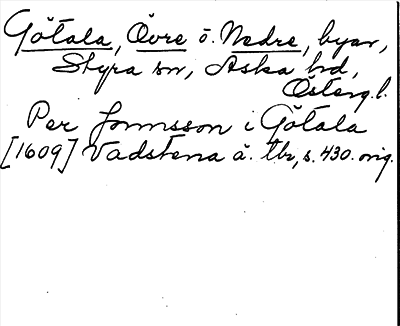 Götala, Övre o. Nedre, byar,
Styra sn, Aska hd,
Österg.l.
Per Jonnsson i Götala
[1609] Vadstena ä. tbr, s. 430. orig.